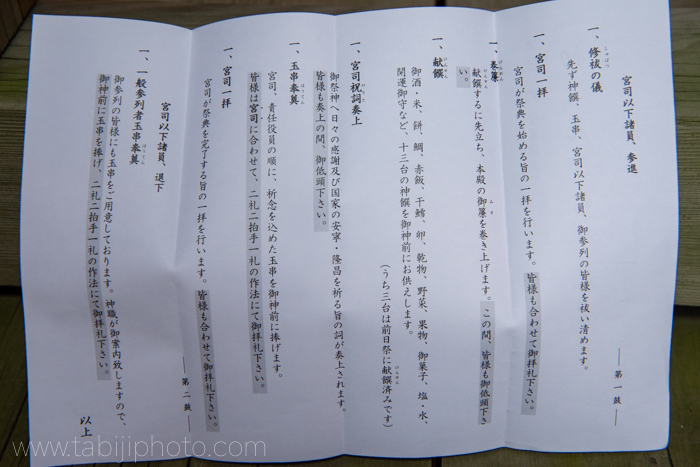 宮司以下諸員、参進
―― 第一鼓 ――
一、修祓の儀
先ず神饌、玉串、宮司以下諸員、御参列の皆様を祓い清めます。
一、宮司一拝
宮司が祭典を始める旨の一拝を行います。皆様も合わせて御拝礼下さい。
一、巻簾
献饌するに先立ち、本殿の御簾を巻き上げます。この間、皆様も御低頭下さ
い。
一、献饌
御酒・米、餅、鯛、赤飯、干鱈、卵、乾物、野菜、果物、御菓子、塩・水、
開運御守など、十三台の神饌を御神前にお供えします。
(うち三台は前日祭に献饌済みです)
一、宮司祝詞奏上
御祭神へ日々の感謝及び国家の安寧・隆昌を祈る旨の詞が奏上されます。
皆様も奏上の間、御低頭下さい。
一、玉串奉奠
宮司、責任役員の順に、祈念を込めた玉串を御神前に捧げます。
皆様は宮司に合わせて、二礼二拍手一礼の作法にて御拝礼下さい。
一、宮司一拝
宮司が祭典を完了する旨の一拝を行います。皆様も合わせて御拝礼下さい。
―― 第二鼓 ――
宮司以下諸員、退下
一、一般参列者玉串奉奠
御参列の皆様にも玉串をご用意しております。神職が御案内致しますので、
御神前に玉串を捧げ、二礼二拍手一礼の作法にて御拝礼下さい。
以上
www.tabijiphoto.com